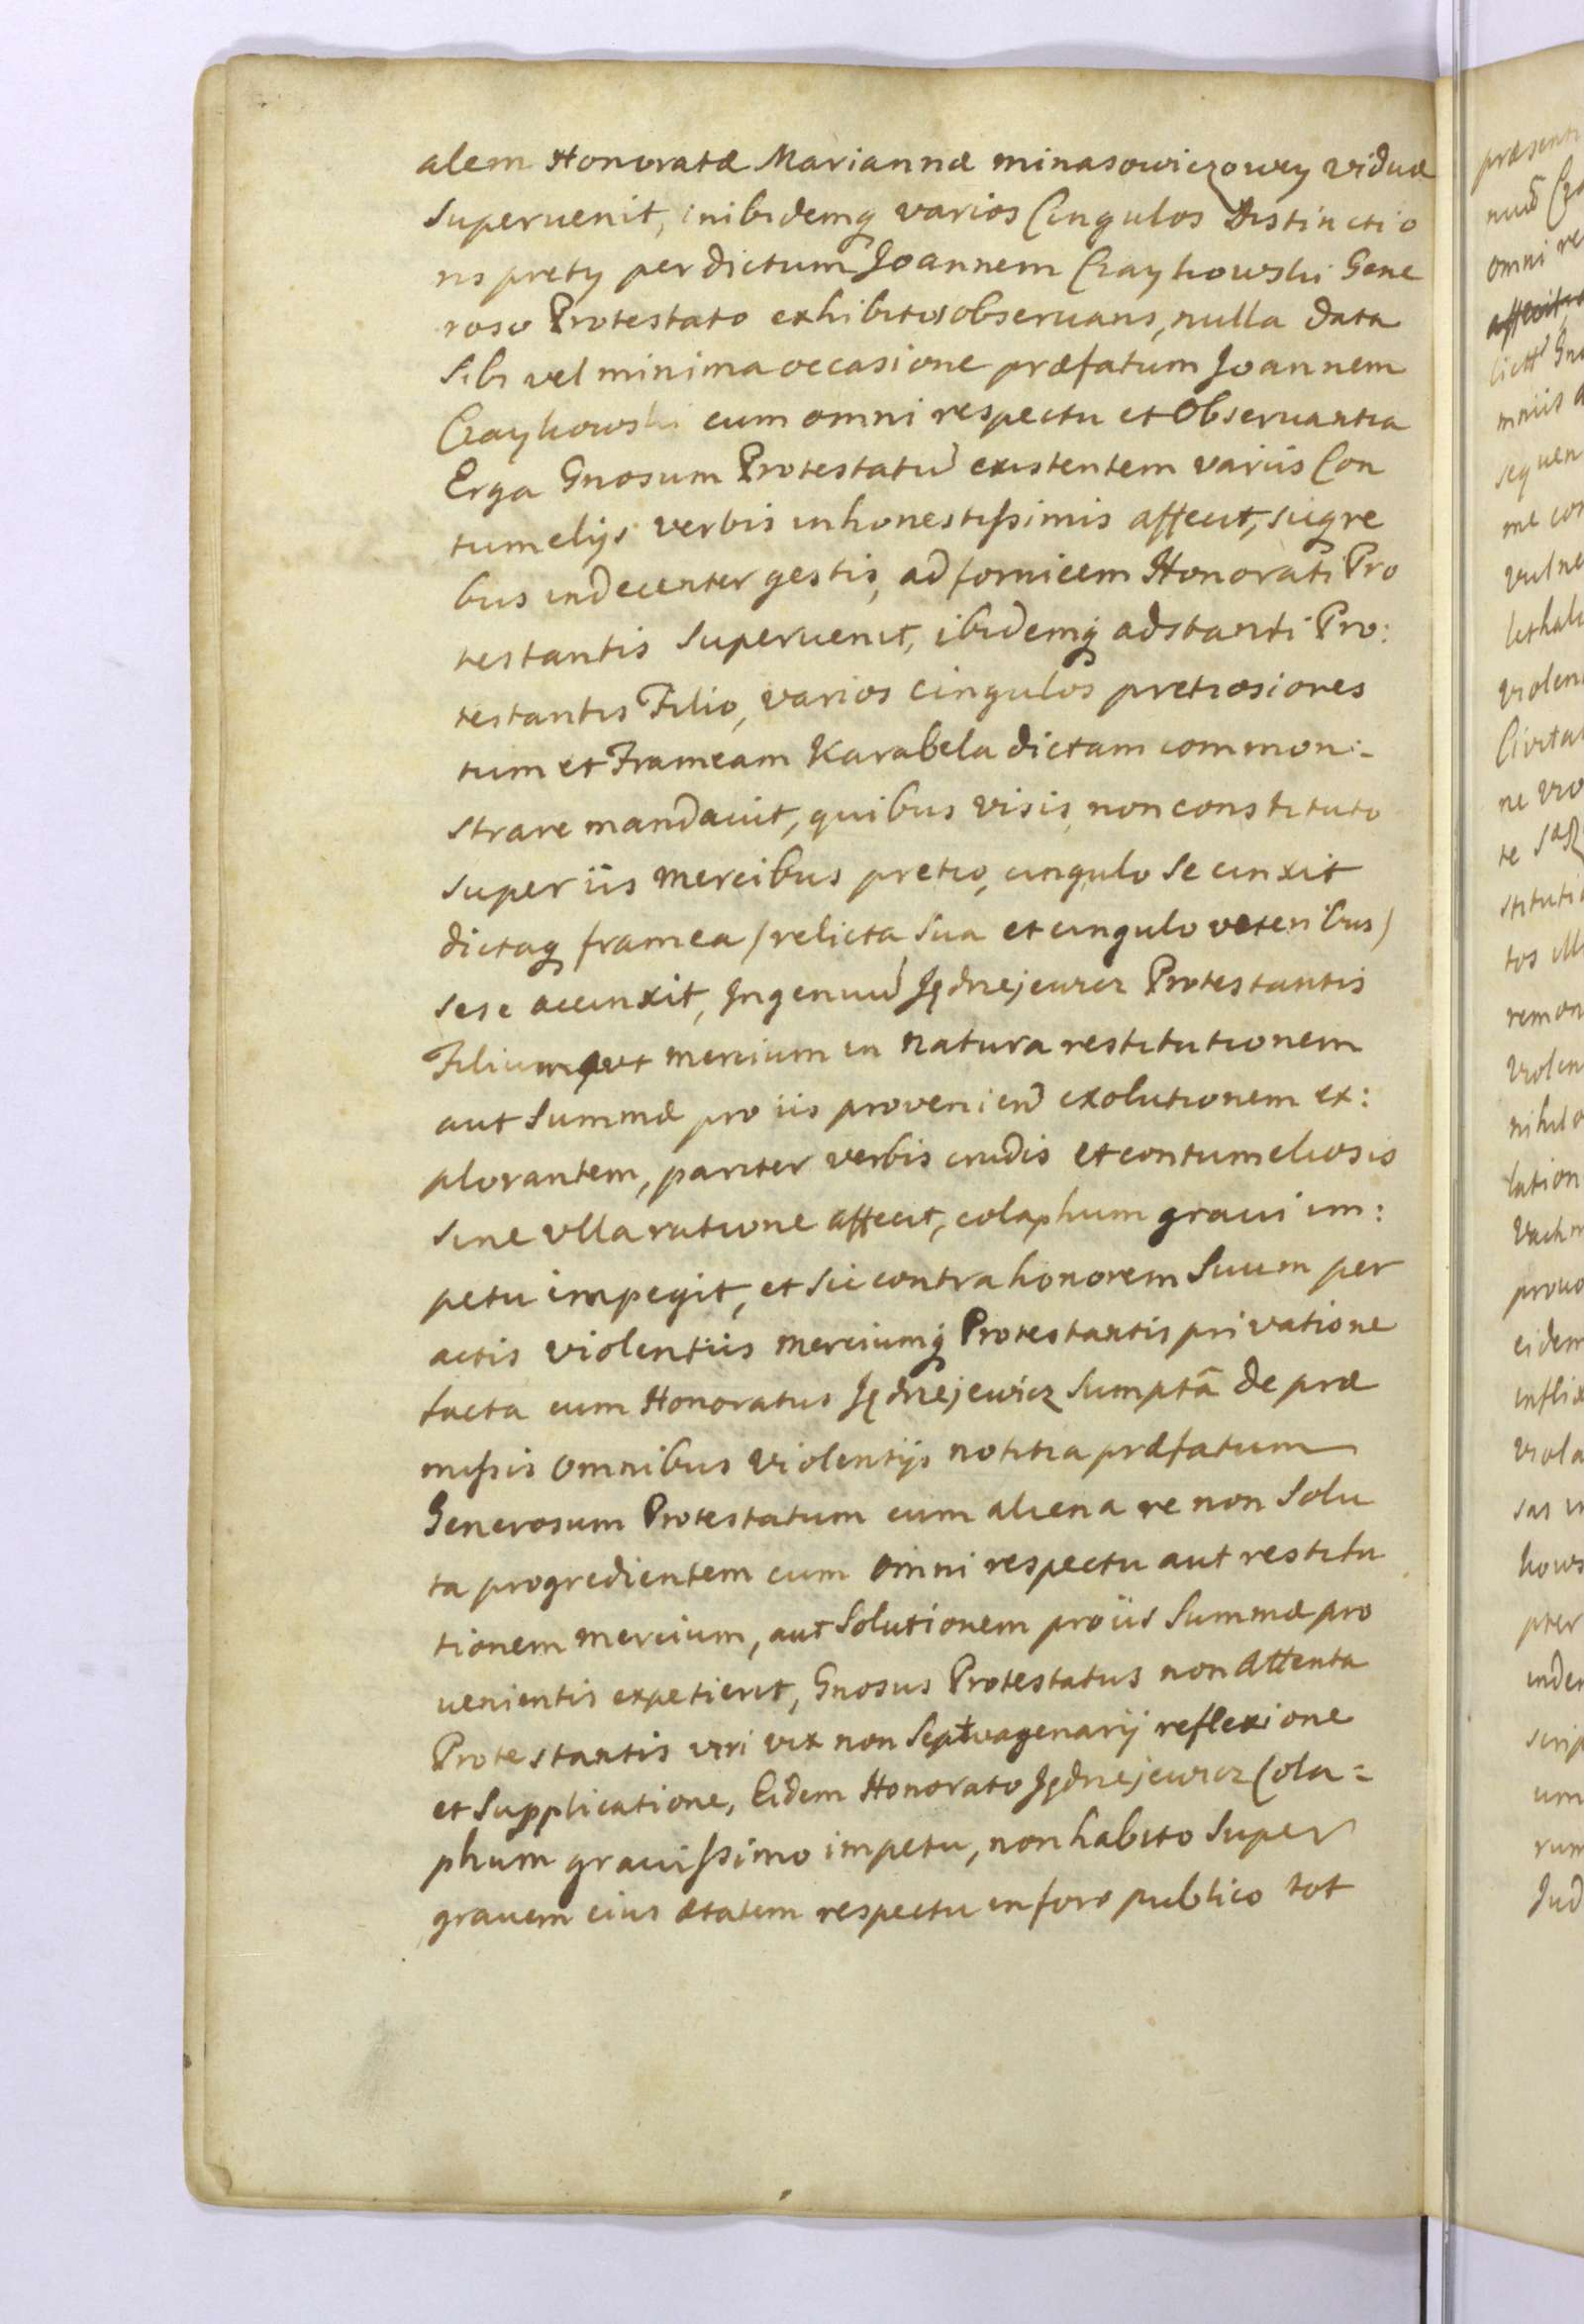 alem Honoratæ Mariannæ minasowiczowey viduæ
Superuenit, inibidemq varios Cingulos Distinctio
nis prety per dictum Joannem Czaykowski Gene
roso Protestato exhibitos obseruans, nulla data
Sibi vel minima occasione præfatum Joannem
Czaykowski cum omni respectu et Obseruantia
Erga Gnosum Protestatũ existentem variis Con
tumelijs verbis inhonestissimis affecit, sicqre
bus indecenter gestis, ad fornicem Honorati Pro
testantis Superuenit, ibidemq adstanti Pro:
testantis Filio, varios cingulos pretiosiores
tum et Frameam Karabela dictam common:
strare mandauit, quibus visis, non constituto
super iis mercibus pretio, cingulo Se cinxit
dictaq framea /relicta Sua et cingulo veteribus/
sese accinxit, Ingenuũ Jędrzejewicz Protestantis
Filium aut mercium in natura restitutionem
aut Summæ pro iis provenieñ exolutionem ex:
plorantem, pariter verbis crudis et contumeliosis
Sine vlla ratione affecit, colaphum graui im:
petu impegit, et sic contra honorem Suum per
actis violentiis merciumq Protestantis privatione
facta cum Honoratus Jędrzejewicz Sumptã de præ
missis omnibus violentijs notitia præfatum
Generosum Protestatum cum aliena re non Solu
ta progredientem cum omni respectu aut restitu
tionem mercium, aut Solutionem pro iis Summæ pro
uenientis expetierit, Gnosus Protestatus non attenta
Protestantis viri vix non Septuagenarij reflexione
et Supplicatione, Eidem Honorato Jędrzejewicz Cola=
phum grauissimo impetu, non habito Super
grauem eius ætatem respectu in foro publico tot
præsenti
omni re
sequen
vulne
violen
Civita
stituti
remon
violen
nihilo
lation
eidem
viola